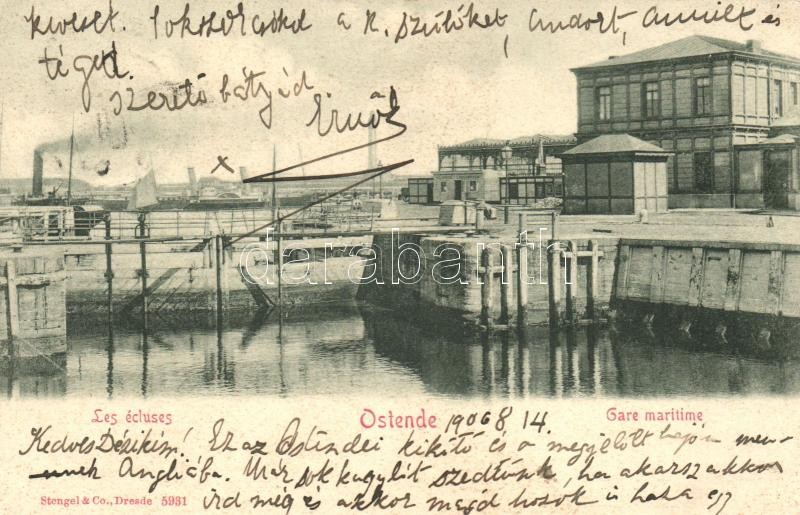 keveset. Sokszor csókol a k. szülőket, Andort, Amált és
téged.
szerető bátyád
Ernő
x
darabanth
Les écluses Ostende 1906 8 14. Gare maritime
Kedves Dezsikém! Ez az Ostendei kikötő és a megjelölt hajón men-
nek Angliába. Már sok kagylót szedtünk, ha akarsz akkor
írd még és akkor majd hozok is haza egy
Stengel & Co., Dresde 5931